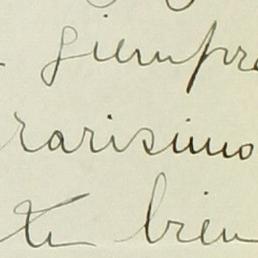 siempre
rarisimo
tu bien